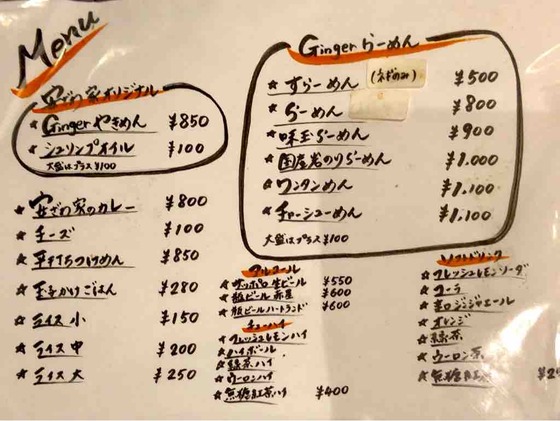 Menu
安ざわ家オリジナル
★ Gingerやきめん ¥850
★ シュリンプオイル ¥100
大盛はプラス¥100
★ 安ざわ家のカレー ¥800
★ チーズ ¥100
★ 平打ちつけめん ¥850
★ 玉子かけごはん ¥280
★ ライス 小 ¥150
★ ライス 中 ¥200
★ ライス 大 ¥250
Ginger らーめん
★ すらーめん (ネギのみ) ¥500
★ らーめん ¥800
★ 味玉らーめん ¥900
★ 国産岩のりらーめん ¥1.000
★ ワンタンめん ¥1.100
★ チャーシューめん ¥1.100
大盛はプラス¥100
アルコール
★ サッポロ生ビール ¥550
★ 瓶ビール 赤星 ¥600
★ 瓶ビール ハートランド ¥600
チューハイ
★ フレッシュレモンハイ
★ ハイボール
★ 緑茶ハイ
★ ウーロンハイ
★ 無糖紅茶ハイ ¥400
ソフトドリンク
★ フレッシュレモンソーダ
★ コーラ
★ 辛口ジンジャエール
★ オレンジ
★ 緑茶
★ ウーロン茶
★ 無糖紅茶